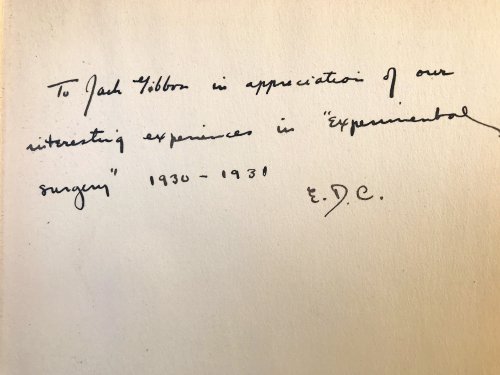 To Jack Gibbon in appreciation of our
interesting experiences in "Experimental
surgery" 1930 - 1931
E. D. C.